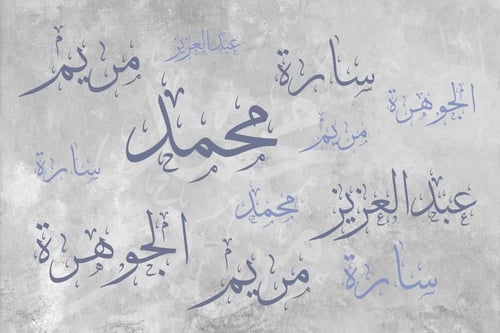 عبدالعزيز
مريم
سارة
الجوهرة
محمد
مريم
سارة
محمد
عبدالعزيز
الجوهرة
مريم
سارة